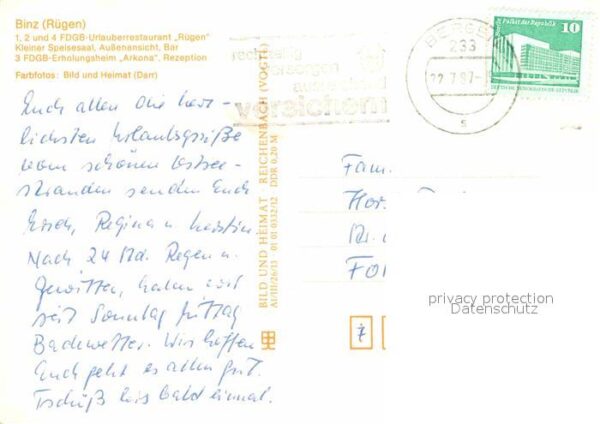 Binz (Rügen)
1, 2 und 4 FDGB-Urlauberrestaurant „Rügen"
Kleiner Speisesaal, Außenansicht, Bar
3 FDGB-Erholungsheim „Arkona", Rezeption
Farbfotos: Bild und Heimat (Darr)
Euch allen die herz-
lichsten Urlaubsgrüße
vom schönen Ostsee-
stranden senden Euch
Erich, Regina u.
Nach 24 Std. Regen u.
Gewitter, haben wir
seit Sonntag Mittag
Badewetter. Wir hoffen
Euch geht es allen gut.
Tschüß bis bald einmal.
BILD UND HEIMAT REICHENBACH (VOGTL)
A1/III/26/13 01 01 0332/12 DDR 0,20 M
rechtzeitig
versorgen
versichern
BERGEN
233
22.7.87
s
Palast der Republik
10
DEUTSCHE DEMOKRATISCHE REPUBLIK
Fam.
Hor.
privacy protection
Datenschutz